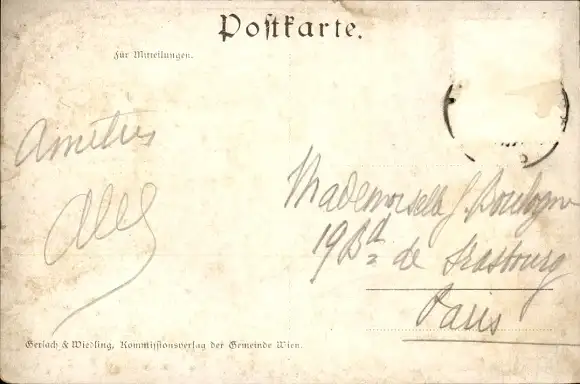 Postkarte.
Für Mitteilungen.
Amitiés
Abel
Mademoiselle G. Boulogne
19 Bd de Strasbourg
Paris
Gerlach & Wiedling, Kommissionsverlag der Gemeinde Wien.